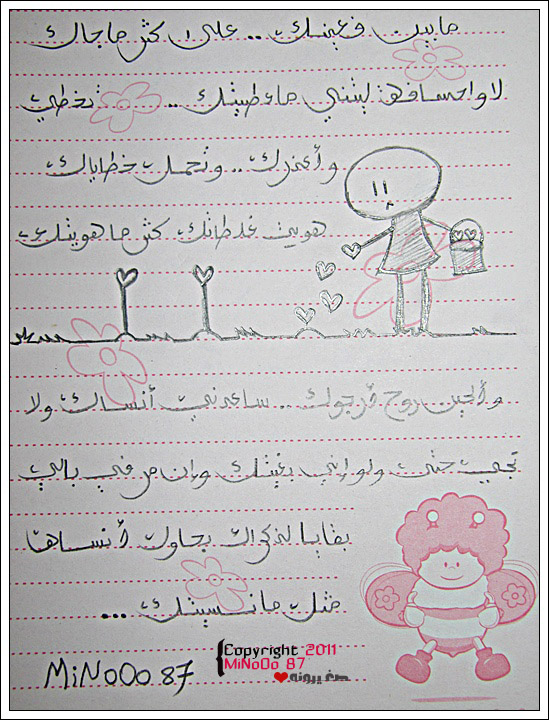 ما بين فعينك .. على كثر ما جاك
لا واحسافه ليتني ما عطيتك ... تخطي
وأعذرك .. وتحمل خطاياك
هويت غلطاتك كثر ما هويتك
والحين روح أرجوك .. ساعدني أنساك ولا
تجي حتى ولو إني بغيتك وإن مر في بالي
بقايا لذكراك بحاول أنساها
مثل ما نسيتك ...
MiNoOo 87
Copyright 2011
MiNoOo 87